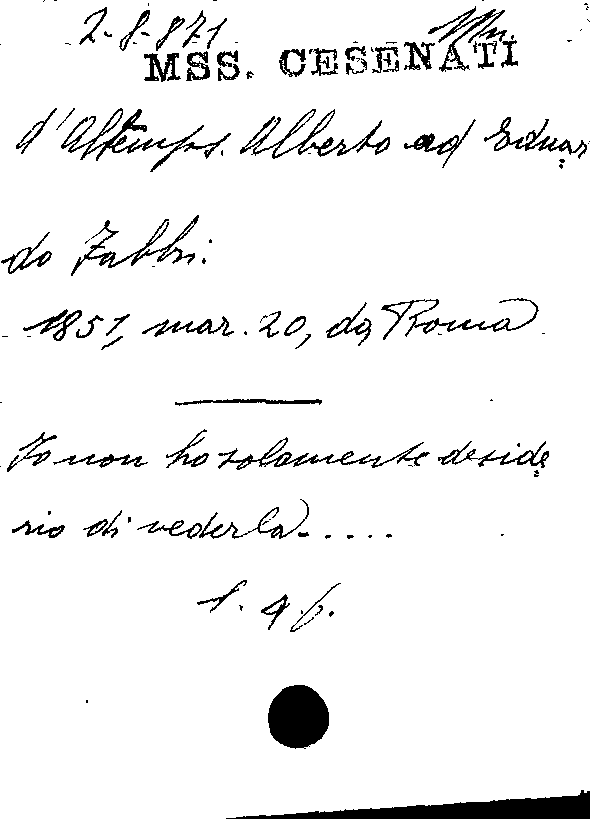 2-8-871
MSS. CESENATI
d'Altemps. Alberto ad Eduar
do Fabbri.
1851, mar. 20, da Roma
Io non ho solamente deside
rio di vederla.....